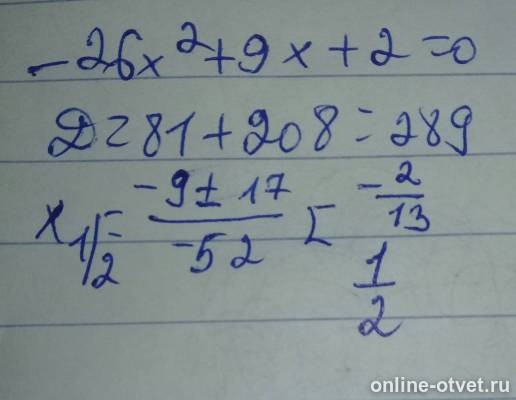 -26x²+9x+2=0
D=81+208=289
x₁/₂= (-9±17)/(-52) [ -2/13
1/2
online-otvet.ru